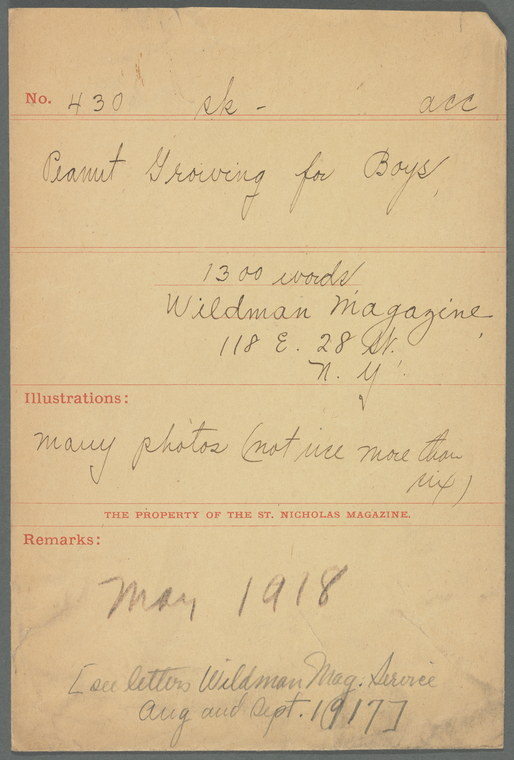 No. 430 sk - acc
Peanut Growing for Boys
1300 words
Wildman Magazine
118 E. 28 St.
N. Y.
Illustrations:
many photos (not use more than
six)
THE PROPERTY OF THE ST. NICHOLAS MAGAZINE.
Remarks:
May 1918
[see letters Wildman Mag. Service
Aug and Sept. 1917]